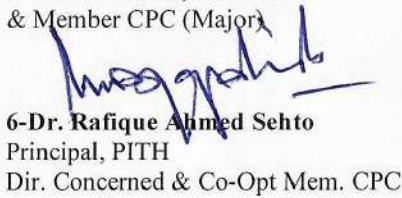 & Member CPC (Major)
6-Dr. Rafique Ahmed Sehto
Principal, PITH
Dir. Concerned & Co-Opt Mem. CPC